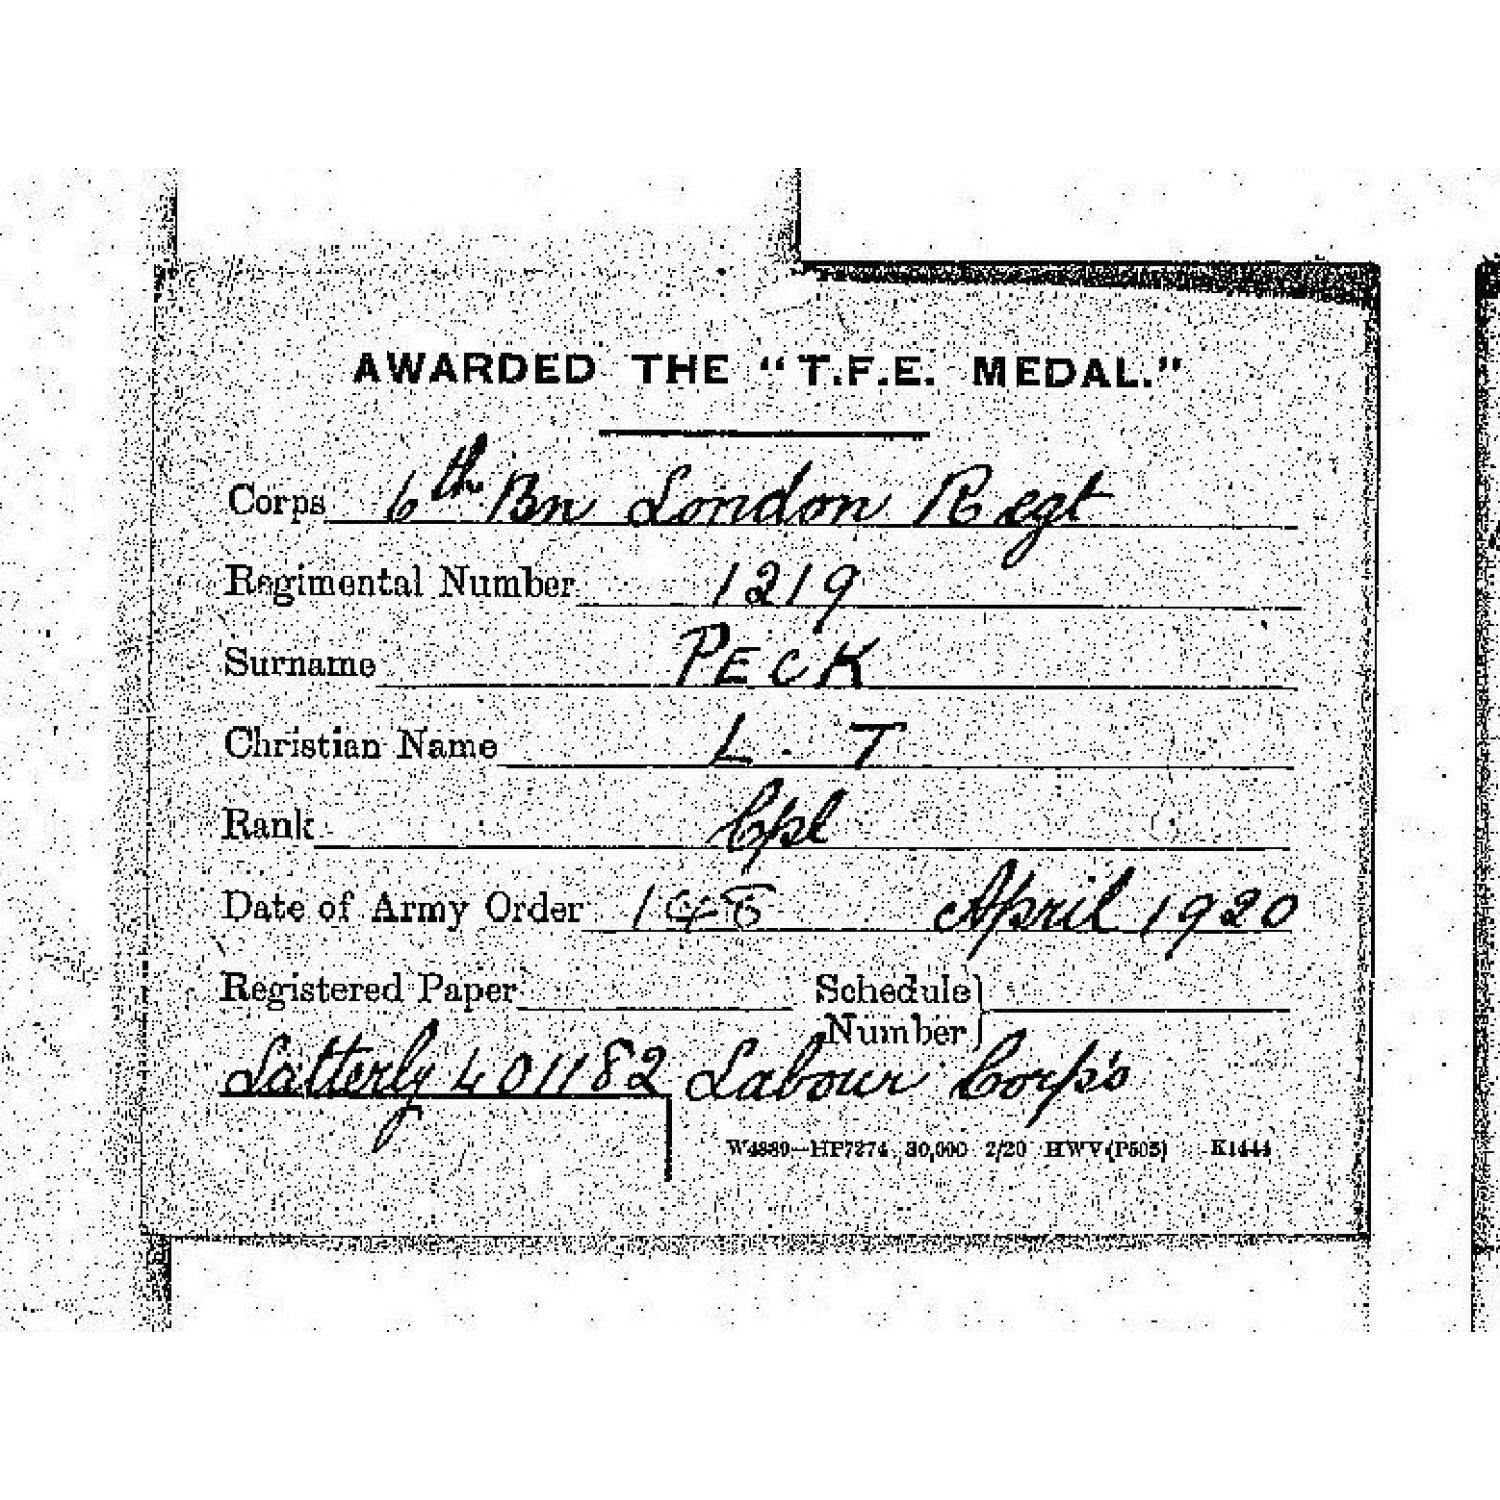 AWARDED THE "T.F.E. MEDAL."
Corps 6th Bn London Regt
Regimental Number 1219
Surname PECK
Christian Name L. T
Rank Cpl
Date of Army Order April 1920
Registered Paper Schedule Number
Latterly 401182 Labour Corps
W4889—HP7274 30,000 2/20 HWV(P505) K1444